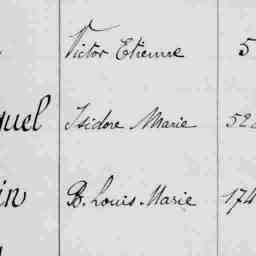 Victor Etienne 5
quel Isidore Marie 52
in B. Louis Marie 174